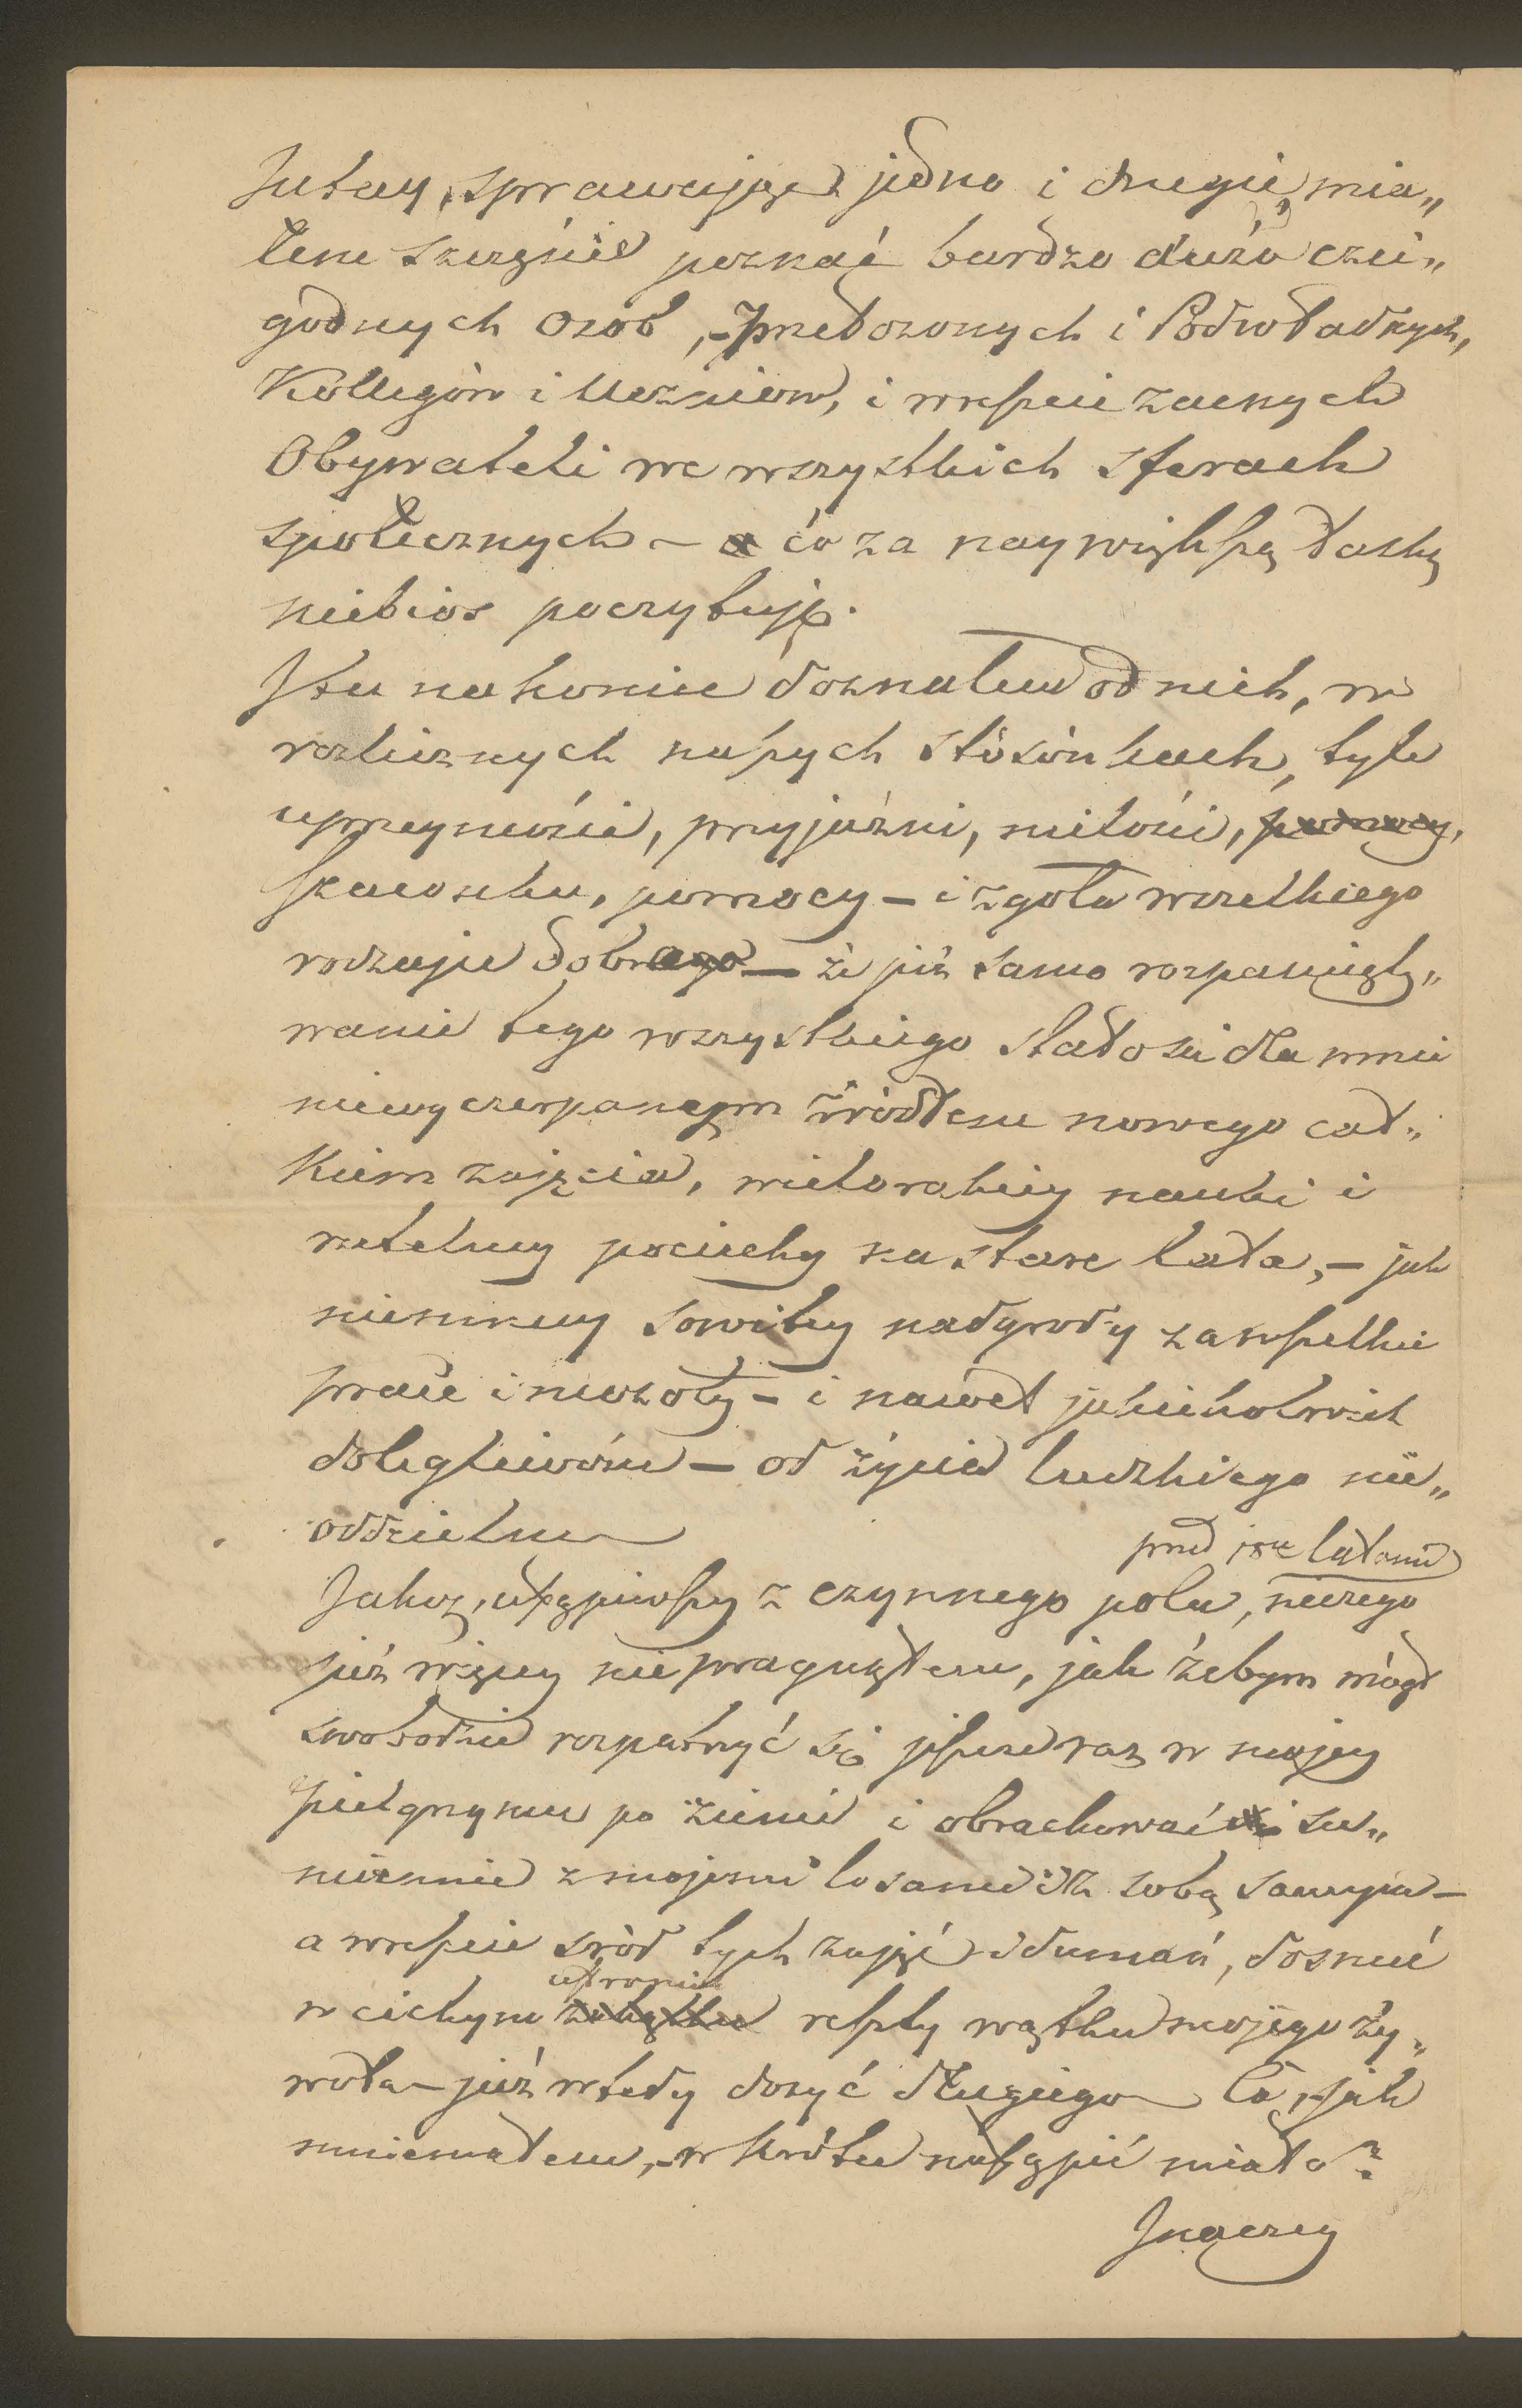 Tutay, sprawując jedno i drugie, mia„
łem szczęście poznać bardzo dużo czci„
godnych osób, – Przełożonych i Podwładnych,
Kollegów i Uczniów, i wreszcie zacnych
Obywateli we wszystkich sferach
społecznych – co za naywiększą łaskę
niebios poczytuję.
I tu nakoniec doznałem od nich, w
rozlicznych naszych stósónkach, tyle
uprzeymości, przyjaźni, miłości, pomocy,
szacunku, pomocy – i zgoła wszelkiego
rodzaju dobrego – że już samo rozpamięty„
wanie tego wszystkiego stało się dla mnie
niewyczerpanem źródłem nowego cał„
kiem zajęcia, wielorakiey nauki i
rzetelney pociechy na stare lata, – jak
niemniey sowitey nadgrody za wszelkie
prace i mozoły – i nawet jakiekolwiek
dolegliwości – od życia ludzkiego nie„
oddzielne
przed latami
Jakoż, ustąpiwszy z czynnego pola, niczego
już więcey nie pragnąłem, jak żebym mógł
swobodnie rozpatrzyć się jeszcze raz w mojey
pielgrzymce po ziemi i obrachować się su„
miennie z mojemi losami i z sobą samym –
a wreszcie śród tych zajęć i dumań, dosnuć
ustroniu
w cichym zakątku reszty wątku mojego ży„
wota – już wtedy dosyć długiego Co, – jak
mniemałem, – w krótce nastąpić miało?
Inaczey